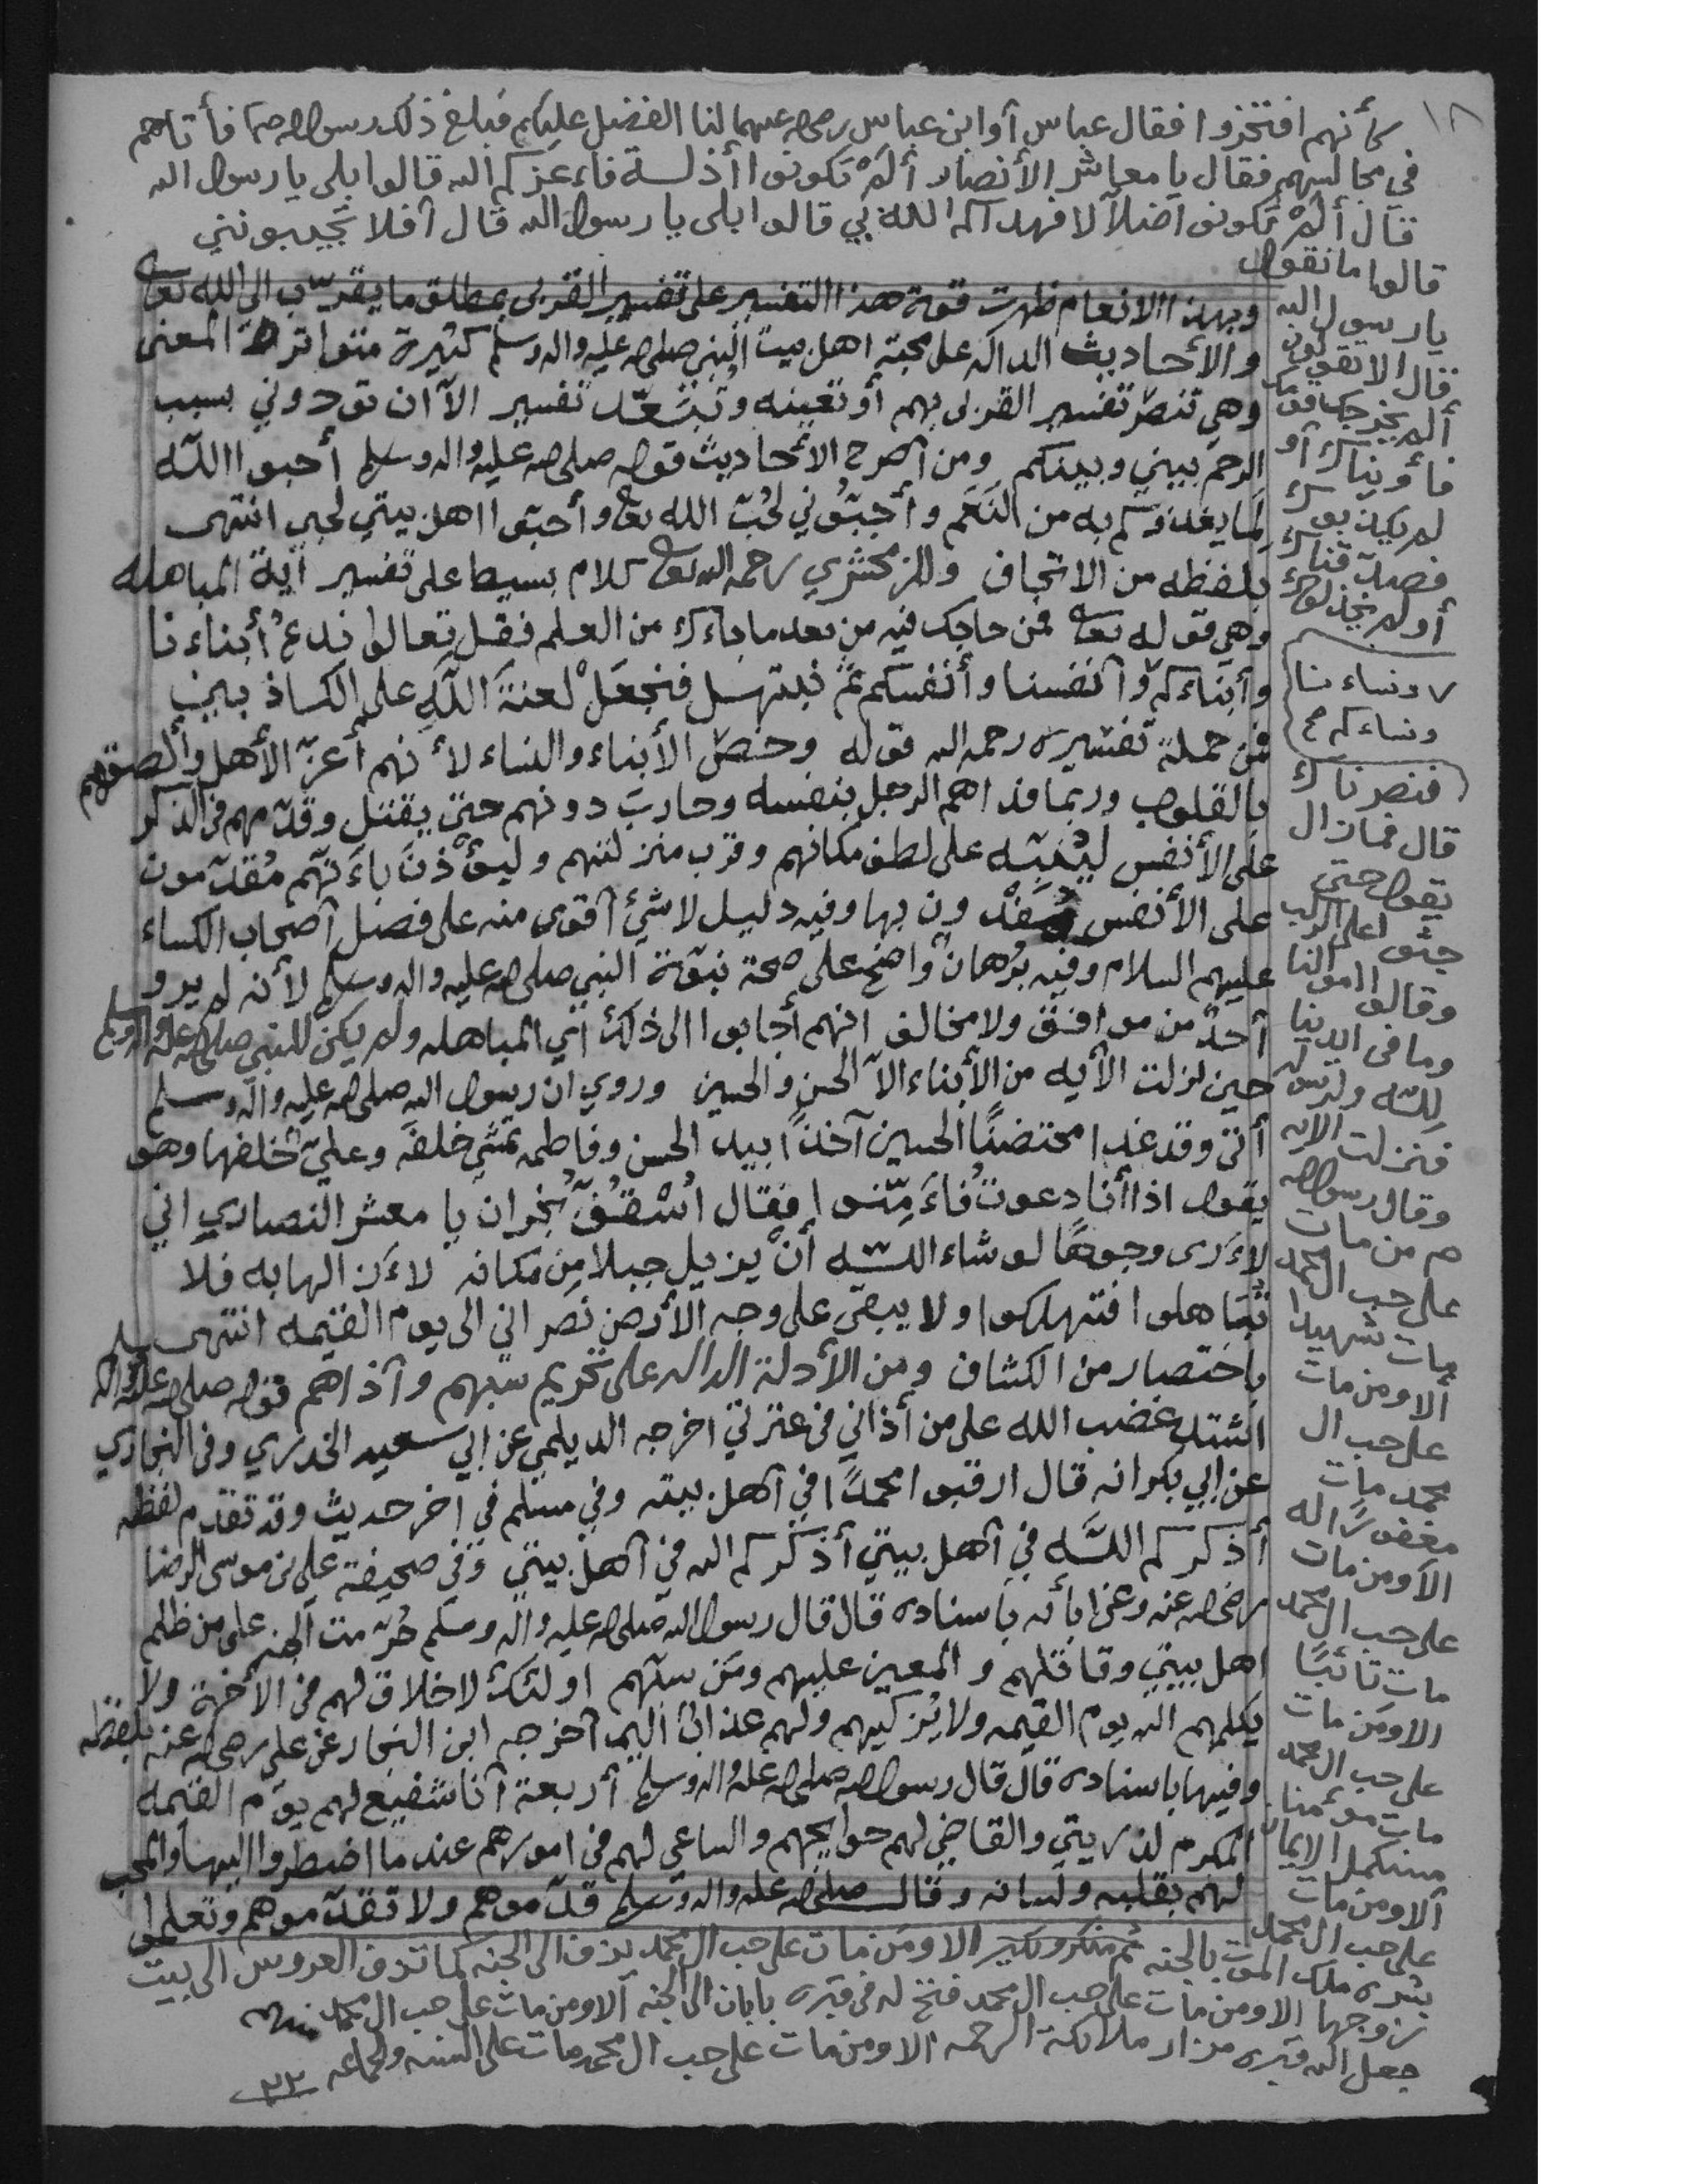 ١٨
كأنهم افتخروا فقال عباس أو ابن عباس رضي الله عنهما لنا الفضل عليكم فبلغ ذلك رسول الله صم فأتاهم
في مجالسهم فقال يا معاشر الأنصار ألم تكونوا أذلة فاعزكم الله قالوا بلى يا رسول الله
قال ألم تكونوا ضلالا فهداكم الله بي قالوا بلى يا رسول الله قال أفلا تجيبونني
قالوا ما نقول
يا رسول الله
قال الا تقولون
ألم يخرجك قومك
فأويناك أو
لم يكذبوك
فصدقناك
أولم يخذلوك
فنصرناك
قال فما زال
يقول حتى
جثوا على الركب
وقالوا اموالنا
وما في ايدينا
لله ولرسوله
فنزلت الايه
وقال رسول الله
صم من مات
على حب ال محمد
مات شهيدا
ألا ومن مات
على حب ال
محمد مات
مغفورا له
الا ومن مات
على حب ال محمد
مات تائبا
الا ومن مات
على حب ال محمد
مات مؤمنا
مستكمل الايمان
ألا ومن مات
على حب ال محمد
بشره ملك الموت بالجنه ثم منكر ونكير الا ومن مات على حب ال محمد يزف الى الجنه كما تزف العروس الى بيت
زوجها الا ومن مات على حب ال محمد فتح له في قبره بابان الى الجنه ألا ومن مات على حب ال محمد
جعل الله قبره مزار ملائكة الرحمه الا ومن مات على حب ال محمد مات على السنه والجماعه
وبهذا الانعام ظهرت قوة هذا التفسير على تفسير القربى بمطلق ما يقرّب الى الله تعالى
والأحاديث الداله على محبة اهل بيت النبي صلى الله عليه واله وسلم كثيرة متواترة المعنى
وهي تنصر تفسير القربى بهم أو تعينه وتبعّد تفسير الا أن تودوني بسبب
الرحم بيني وبينكم ومن أصرح الأحاديث قوله صلى الله عليه واله وسلم أحبوا الله
لما يغذوكم به من النعم وأحبوني لحب الله تعالى وأحبوا اهل بيتي لحبي انتهى
بلفظه من الاتحاف وللزمخشري رحمه الله تعالى كلام بسيط على تفسير آية المباهله
وهي قوله تعالى فمن حاجك فيه من بعد ما جاءك من العلم فقل تعالوا ندع أبناءنا
وأبناءكم وأنفسنا وأنفسكم ثم نبتهل فنجعل لعنة الله على الكاذبين
ونساءنا
ونساءكم صح
فمن جملة تفسيره رحمه الله قوله وخصّ الأبناء والنساء لأنهم أعزّ الأهل وألصقهم
بالقلوب وربما فداهم الرجل بنفسه وحارب دونهم حتى يقتل وقدمهم في الذكر
على الأنفس لينبّه على لطف مكانهم وقرب منزلتهم وليؤذن بأنهم مقدّمون
على الأنفس مفدون بها وفيه دليل لا شئ أقوى منه على فضل أصحاب الكساء
عليهم السلام وفيه برهان واضح على صحة نبوّة النبي صلى الله عليه واله وسلم لأنه لم يرو
أحد من موافق ولا مخالف انهم أجابوا الى ذلك أي المباهله ولم يكن للنبي صلى الله عليه واله وسلم
حين نزلت الأيه من الأبناء الا الحسن والحسين وروي ان رسول الله صلى الله عليه واله وسلم
أتى وقد غدا محتضنا الحسين آخذا بيد الحسن وفاطمه تمشي خلفه وعليّ خلفها وهو
يقول اذا أنا دعوت فأمّنوا فقال أسقف نجران يا معشر النصارى اني
لأرى وجوها لو شاء الله أن يزيل جبلا من مكانه لأزالها به فلا
تباهلوا فتهلكوا ولا يبقى على وجه الأرض نصراني الى يوم القيمه انتهى
باختصار من الكشاف ومن الأدلة الداله على تحريم سبهم وآذاهم قوله صلى الله عليه واله وسلم
اشتد غضب الله على من أذاني في عترتي اخرجه الديلمي عن ابي سعيد الخدري وفي البخاري
عن ابي بكر انه قال ارقبوا محمدا في أهل بيته وفي مسلم في اخر حديث وقد تقدم لفظه
أذكركم الله في أهل بيتي أذكركم الله في أهل بيتي وفي صحيفة علي بن موسى الرضا
رضي الله عنه وعن ابائه باسناده قال قال رسول الله صلى الله عليه واله وسلم حرّمت الجنه على من ظلم
اهل بيتي وقاتلهم والمعين عليهم ومن سبهم اولئك لا خلاق لهم في الأخرة ولا
يكلمهم الله يوم القيمه ولا يزكيهم ولهم عذاب اليم أخرجه ابن النجار عن علي رضي الله عنه بلفظه
وفيها باسناده قال قال رسول الله صلى الله عليه واله وسلم أربعة أنا شفيع لهم يوم القيمه
المكرم لذريتي والقاضي لهم حوايجهم والساعي لهم في امورهم عند ما اضطروا اليه والمحب
لهم بقلبه ولسانه وقال صلى الله عليه واله وسلم قدّموهم ولا تقدّموهم وتعلموا